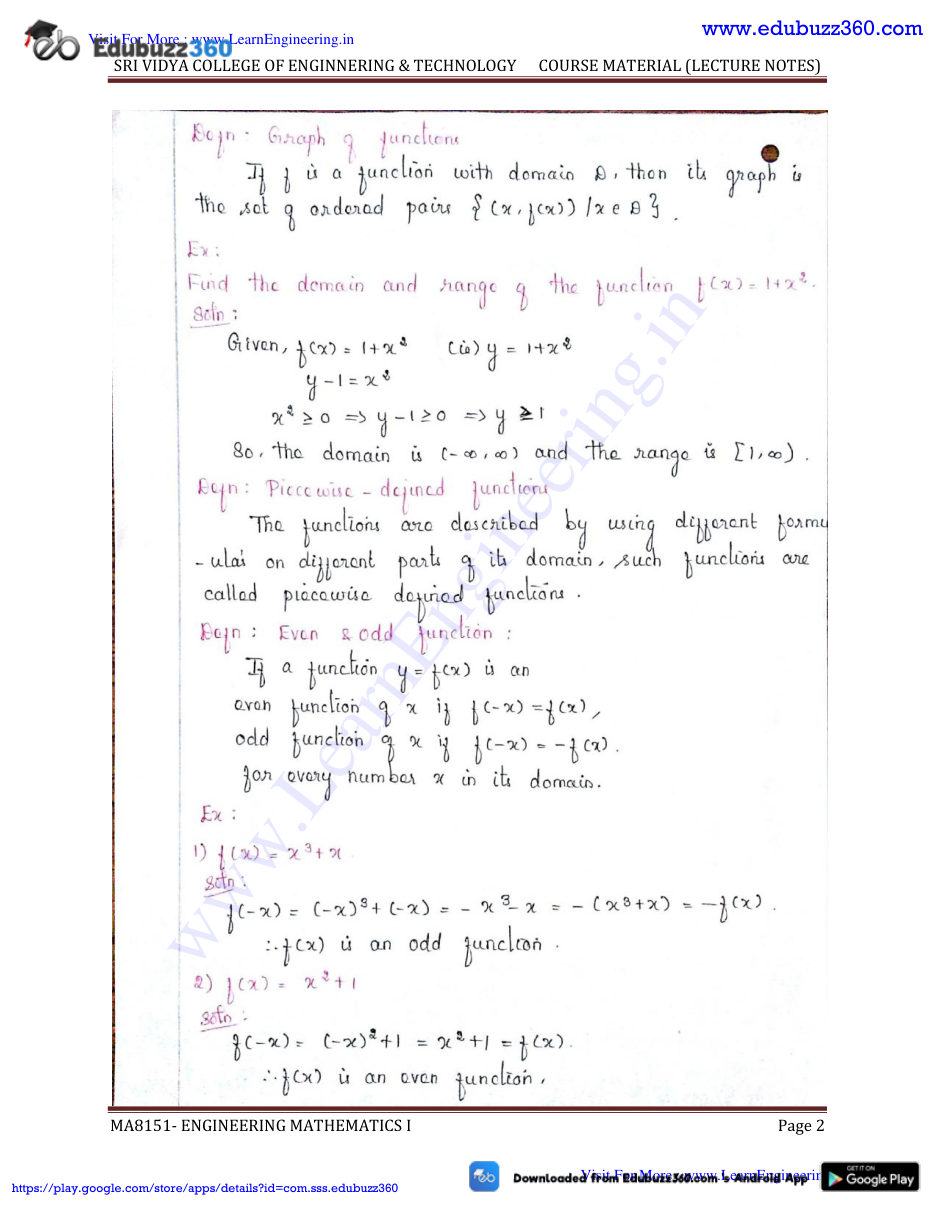 www.edubuzz360.com
Visit For More : www.LearnEngineering.in
Edubuzz360
SRI VIDYA COLLEGE OF ENGINNERING & TECHNOLOGY COURSE MATERIAL (LECTURE NOTES)
Defn : Graph of functions
If f is a function with domain D, then its graph is
the set of ordered pairs {(x, f(x)) / x ∈ D}.
Ex :
Find the domain and range of the function f(x) = 1+x².
Soln :
Given, f(x) = 1+x² (ie) y = 1+x²
y - 1 = x²
x² ≥ 0 => y - 1 ≥ 0 => y ≥ 1
So, the domain is (-∞, ∞) and the range is [1, ∞).
Defn : Piecewise - defined functions
The functions are described by using different formu
- ulas on different parts of its domain, such functions are
called piecewise defined functions.
Defn : Even & odd function :
If a function y = f(x) is an
even function of x if f(-x) = f(x),
odd function of x if f(-x) = -f(x).
for every number x in its domain.
Ex :
1) f(x) = x³ + x.
Soln :
f(-x) = (-x)³ + (-x) = - x³ - x = - (x³ + x) = -f(x).
∴ f(x) is an odd function.
2) f(x) = x² + 1
Soln :
f(-x) = (-x)² + 1 = x² + 1 = f(x).
∴ f(x) is an even function.
www.LearnEngineering.in
MA8151- ENGINEERING MATHEMATICS I Page 2
Downloaded from EduBuzz360.com 's Android App
Visit For More : www.LearnEngineerin
GET IT ON
Google Play
https://play.google.com/store/apps/details?id=com.sss.edubuzz360